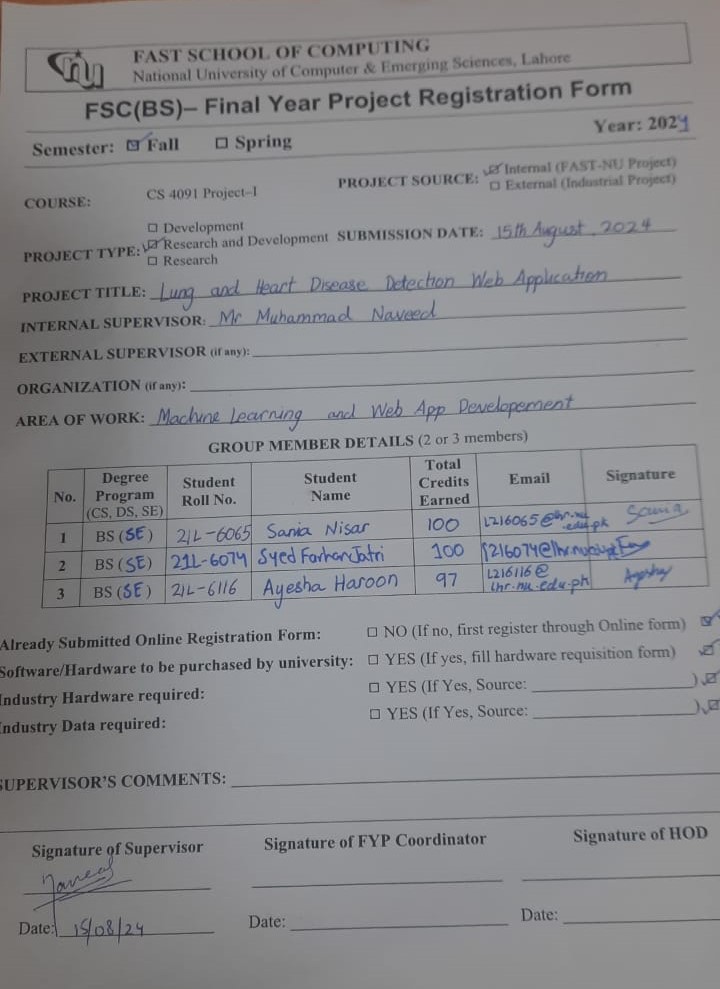 FAST SCHOOL OF COMPUTING
National University of Computer & Emerging Sciences, Lahore
FSC(BS)– Final Year Project Registration Form
Semester: ☑ Fall ☐ Spring Year: 2024
COURSE: CS 4091 Project-I PROJECT SOURCE: ☑ Internal (FAST-NU Project)
☐ External (Industrial Project)
☐ Development
PROJECT TYPE: ☑ Research and Development SUBMISSION DATE: 15th August, 2024
☐ Research
PROJECT TITLE: Lung and Heart Disease Detection Web Application
INTERNAL SUPERVISOR: Mr Muhammad Naveed
EXTERNAL SUPERVISOR (if any):
ORGANIZATION (if any):
AREA OF WORK: Machine Learning and Web App Developement
GROUP MEMBER DETAILS (2 or 3 members)
No. Degree Program (CS, DS, SE) Student Roll No. Student Name Total Credits Earned Email Signature
1 BS (SE) 21L-6065 Sania Nisar 100 L216065@lhr.nu.edu.pk Sania
2 BS (SE) 21L-6074 Syed Farhan Jafri 100
3 BS (SE) 21L-6116 Ayesha Haroon 97 L216116@lhr.nu.edu.pk Ayesha
Already Submitted Online Registration Form: ☐ NO (If no, first register through Online form) ☑
Software/Hardware to be purchased by university: ☐ YES (If yes, fill hardware requisition form) ☑
Industry Hardware required: ☐ YES (If Yes, Source: ) ☑
Industry Data required: ☐ YES (If Yes, Source: ) ☑
SUPERVISOR'S COMMENTS:
Signature of Supervisor Signature of FYP Coordinator Signature of HOD
Naveed
Date: 15/08/24 Date: Date: